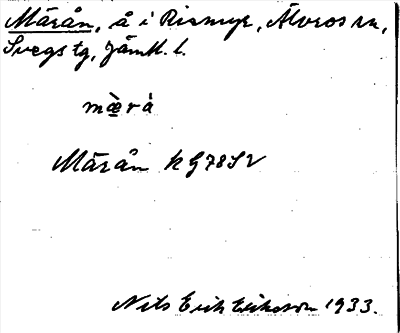 Märån, å i Rismyr, Älvros sn,
Svegs tg, Jämtl. l.
mæ̀rá
Märån k G78SV
Nils Erik Eriksson 1933.